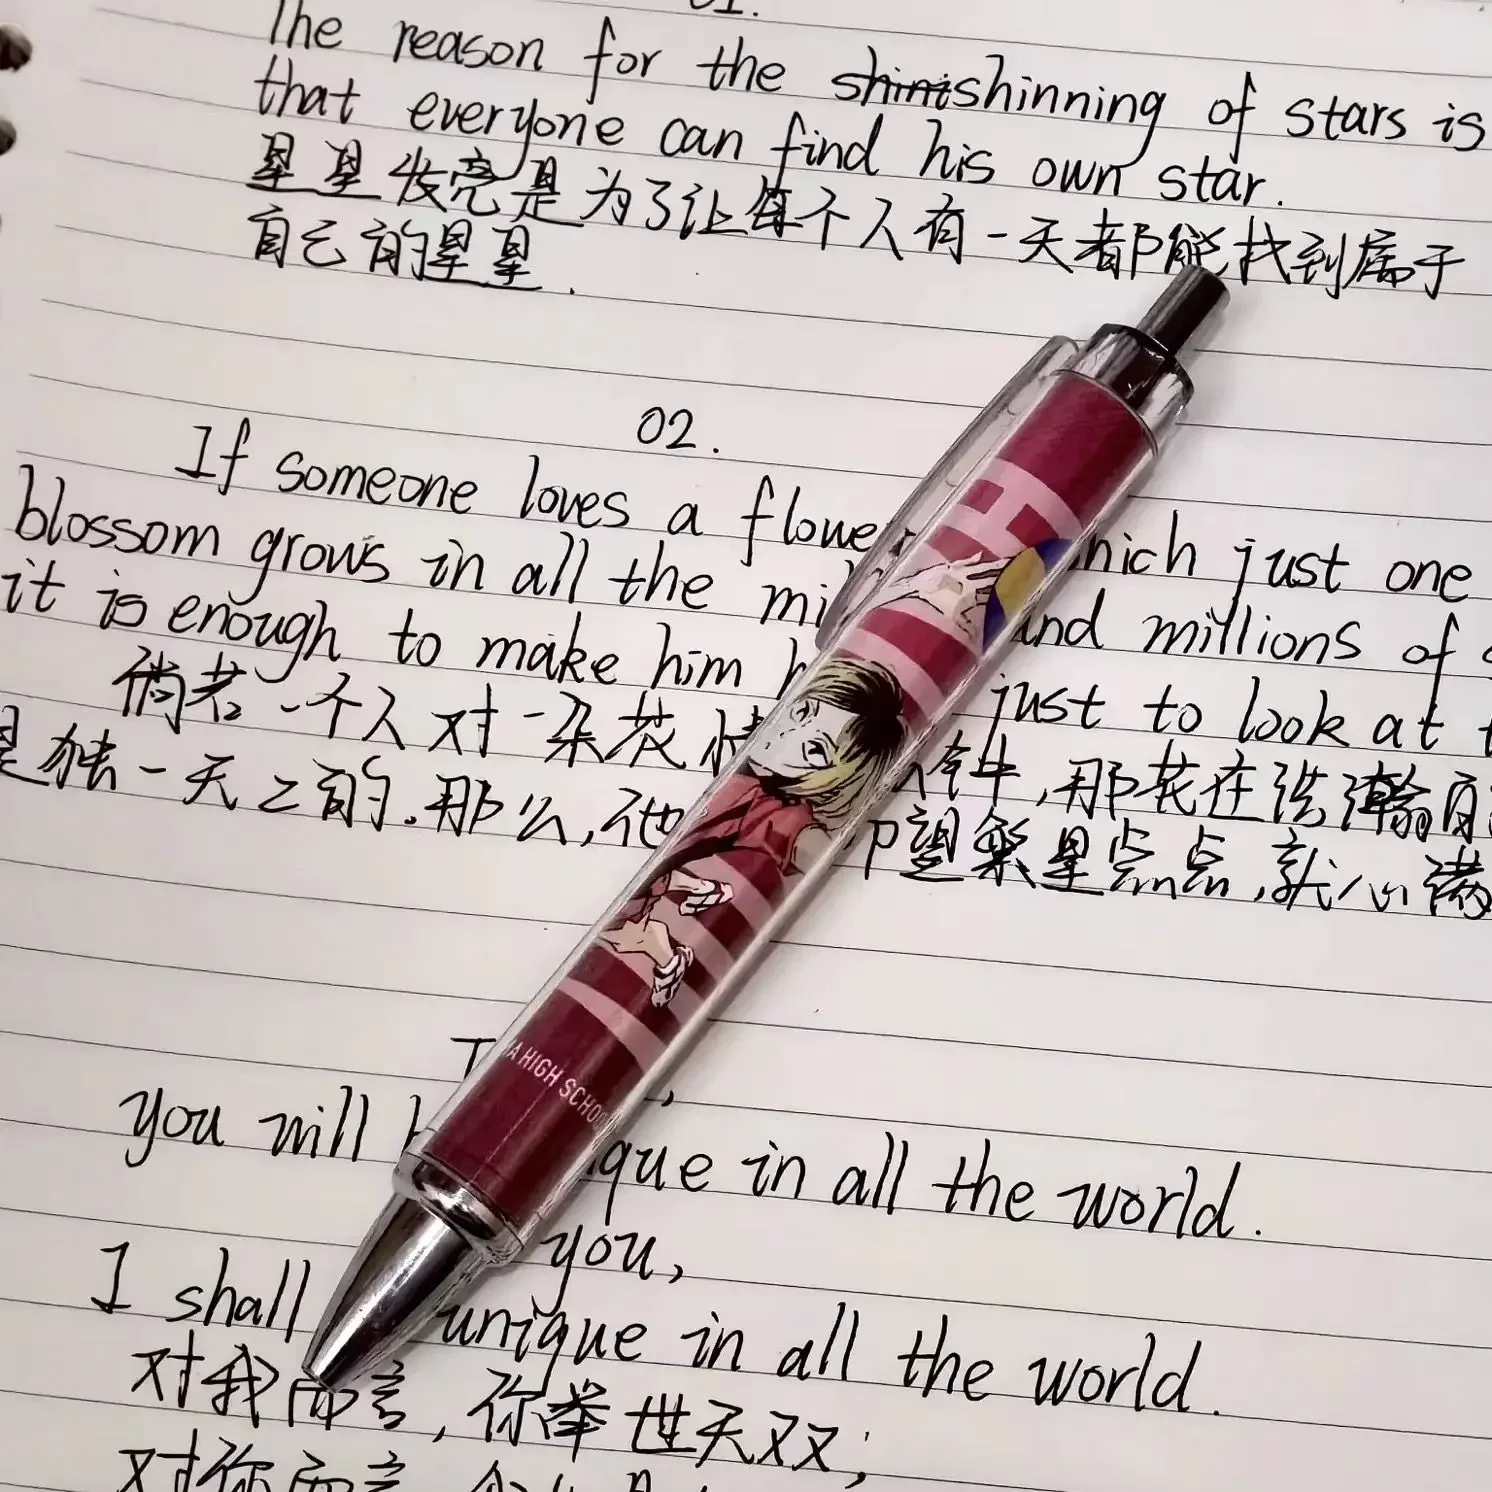 01.
The reason for the shini shinning of stars is
that everyone can find his own star.
星星发亮是为了让每个人有一天都能找到属于
自己的星星.
02.
If someone loves a flower which just one
blossom grows in all the and millions of
it is enough to make him just to look at
倘若一个人对一朵花情 那花在浩瀚
是独一无二的.那么,他 望繁星点点,就心满
you will unique in all the world.
you,
I shall unique in all the world.
对我而言,你举世无双;
对你而言,
A HIGH SCHOO